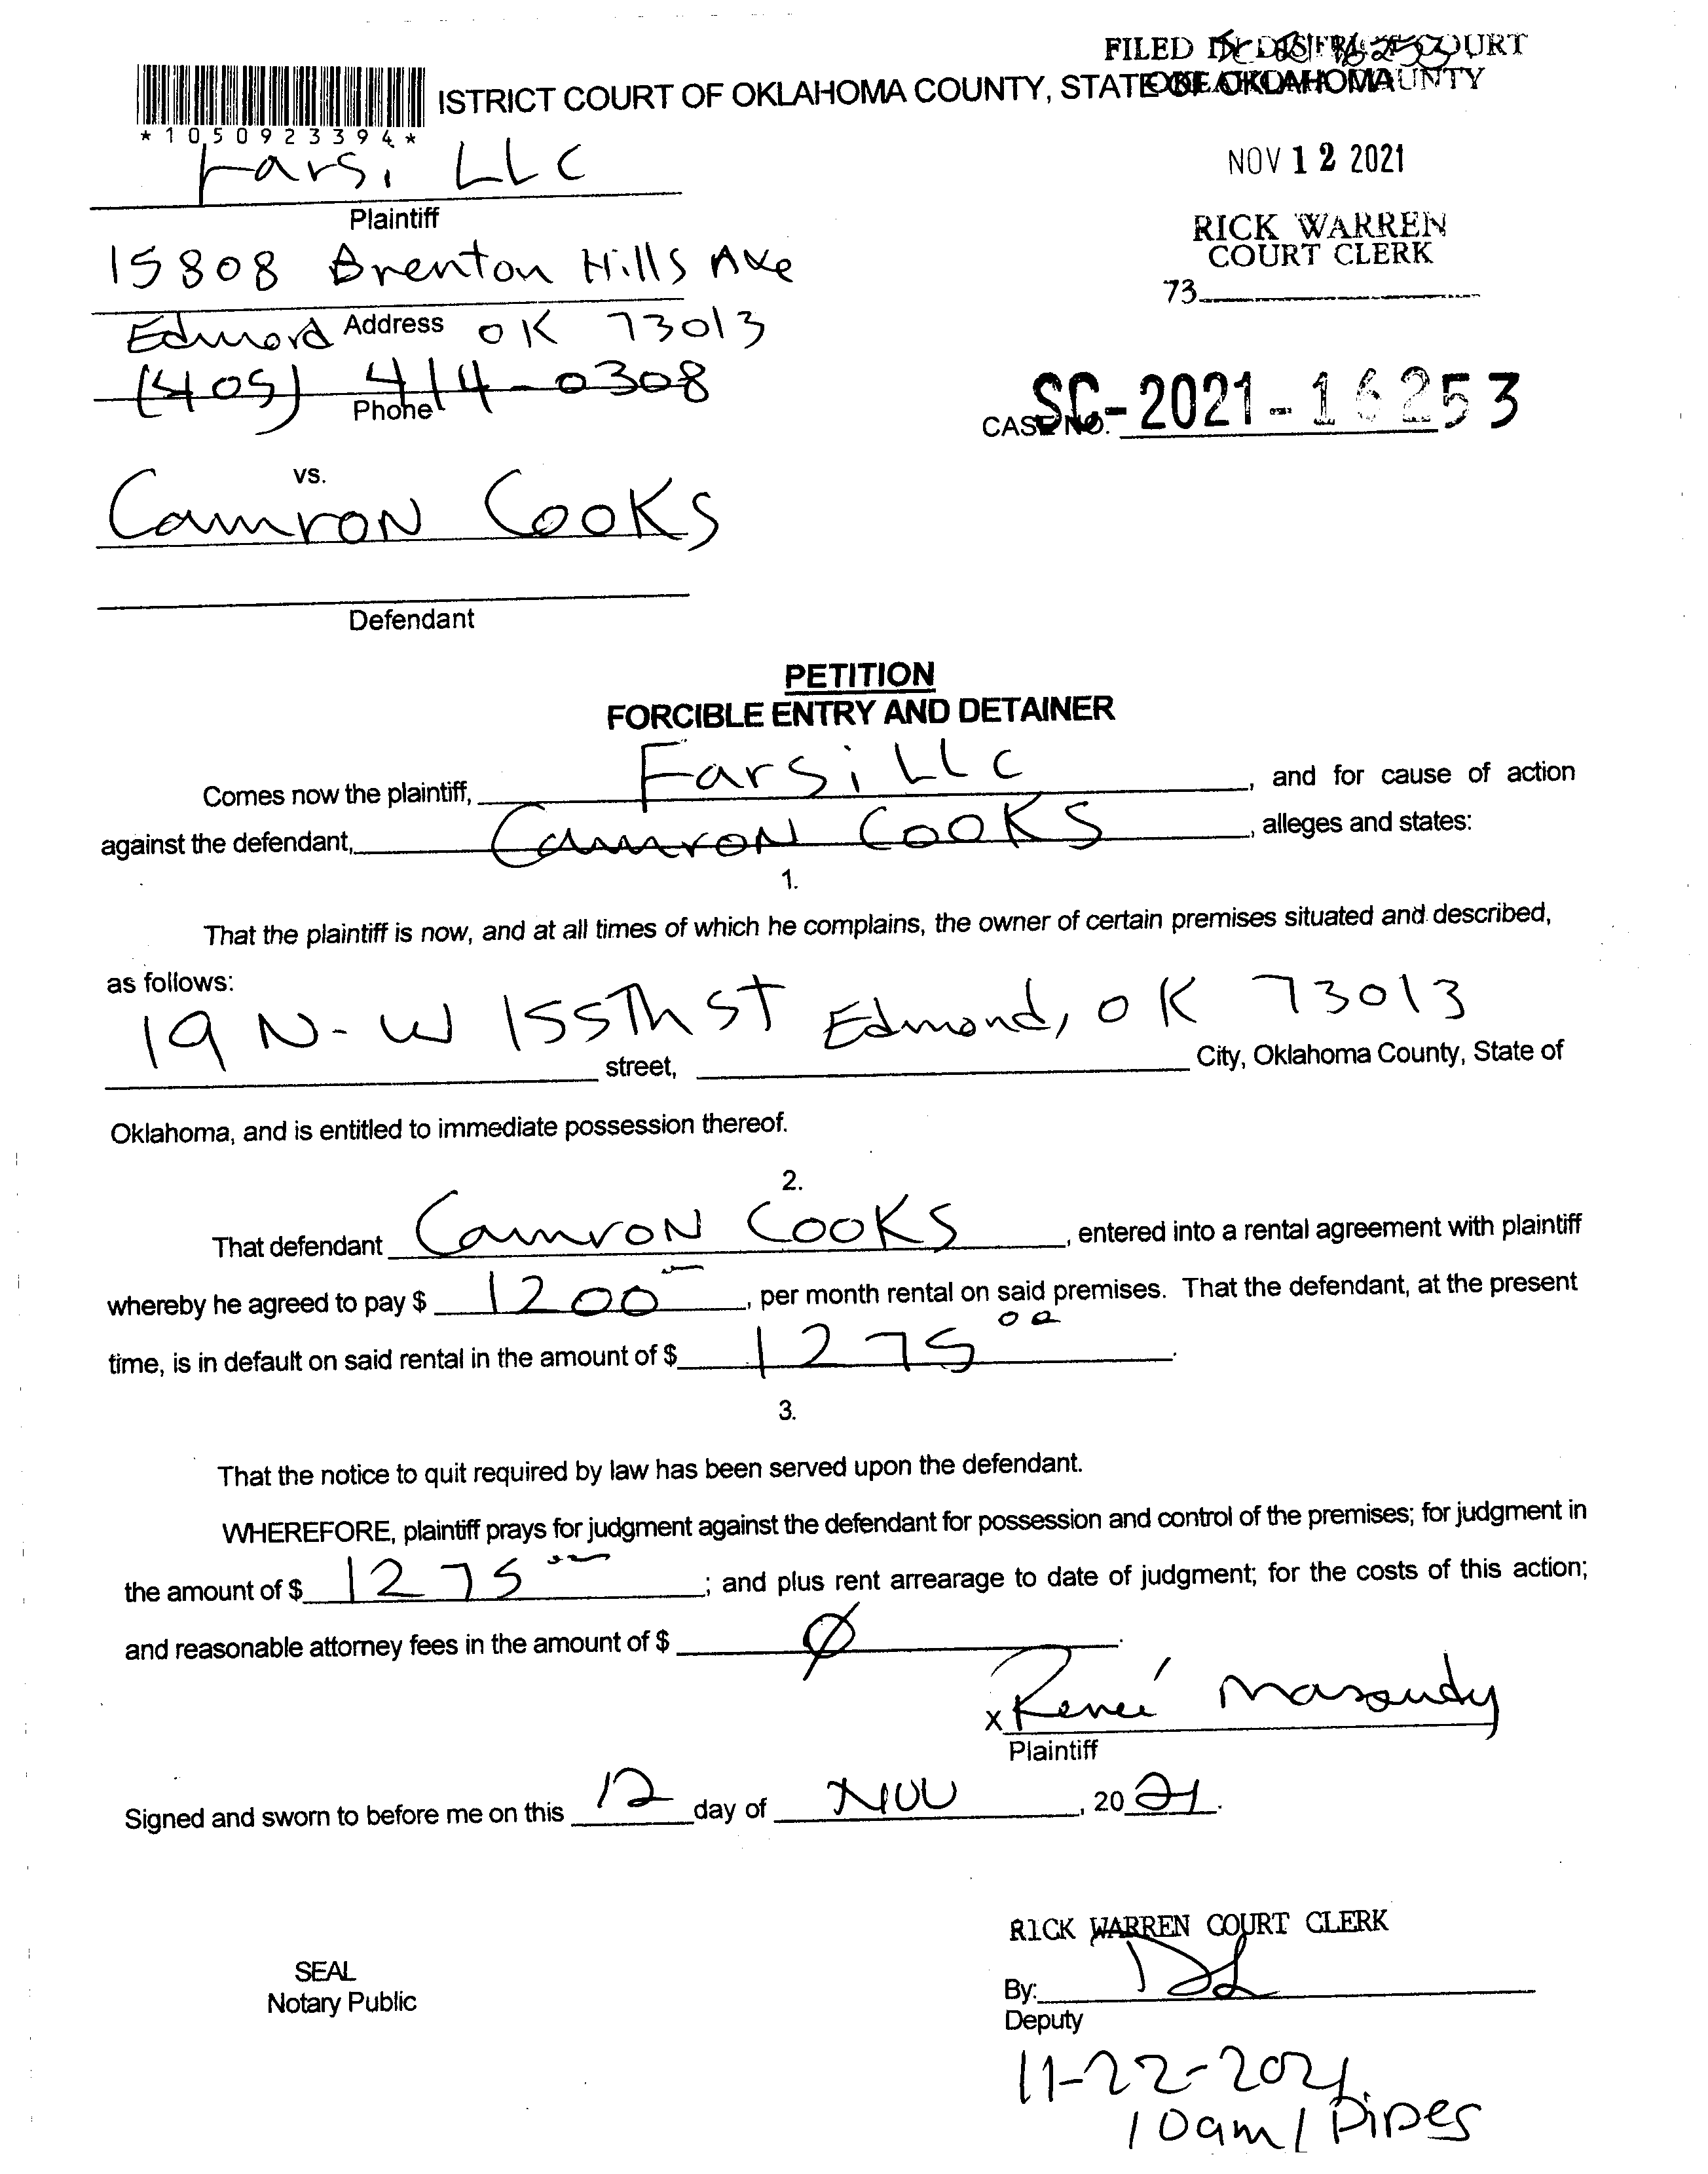 FILED IN DISTRICT COURT
OKLAHOMA COUNTY
ISTRICT COURT OF OKLAHOMA COUNTY, STATE OF OKLAHOMA
*1050923394*
Farsi LLC
Plaintiff
NOV 12 2021
RICK WARREN
COURT CLERK
73
15808 Brenton Hills Ave
Address
Edmond OK 73013
(405) 414-0308
Phone
CASE NO. SC-2021-16253
vs.
Camron Cooks
Defendant
PETITION
FORCIBLE ENTRY AND DETAINER
Comes now the plaintiff, Farsi LLC, and for cause of action
against the defendant, Camron Cooks, alleges and states:
1.
That the plaintiff is now, and at all times of which he complains, the owner of certain premises situated and described,
as follows:
19 N-W 155Th ST Edmond, OK 73013
street, City, Oklahoma County, State of
Oklahoma, and is entitled to immediate possession thereof.
2.
That defendant Camron Cooks, entered into a rental agreement with plaintiff
whereby he agreed to pay $ 1200, per month rental on said premises. That the defendant, at the present
time, is in default on said rental in the amount of $ 1275 00.
3.
That the notice to quit required by law has been served upon the defendant.
WHEREFORE, plaintiff prays for judgment against the defendant for possession and control of the premises; for judgment in
the amount of $ 1275; and plus rent arrearage to date of judgment; for the costs of this action;
and reasonable attorney fees in the amount of $ Ø.
x Reneé Masoudy
Plaintiff
Signed and sworn to before me on this 12 day of NOV, 2021.
RICK WARREN COURT CLERK
SEAL
Notary Public
By:
Deputy
11-22-2021
10am / Pipes